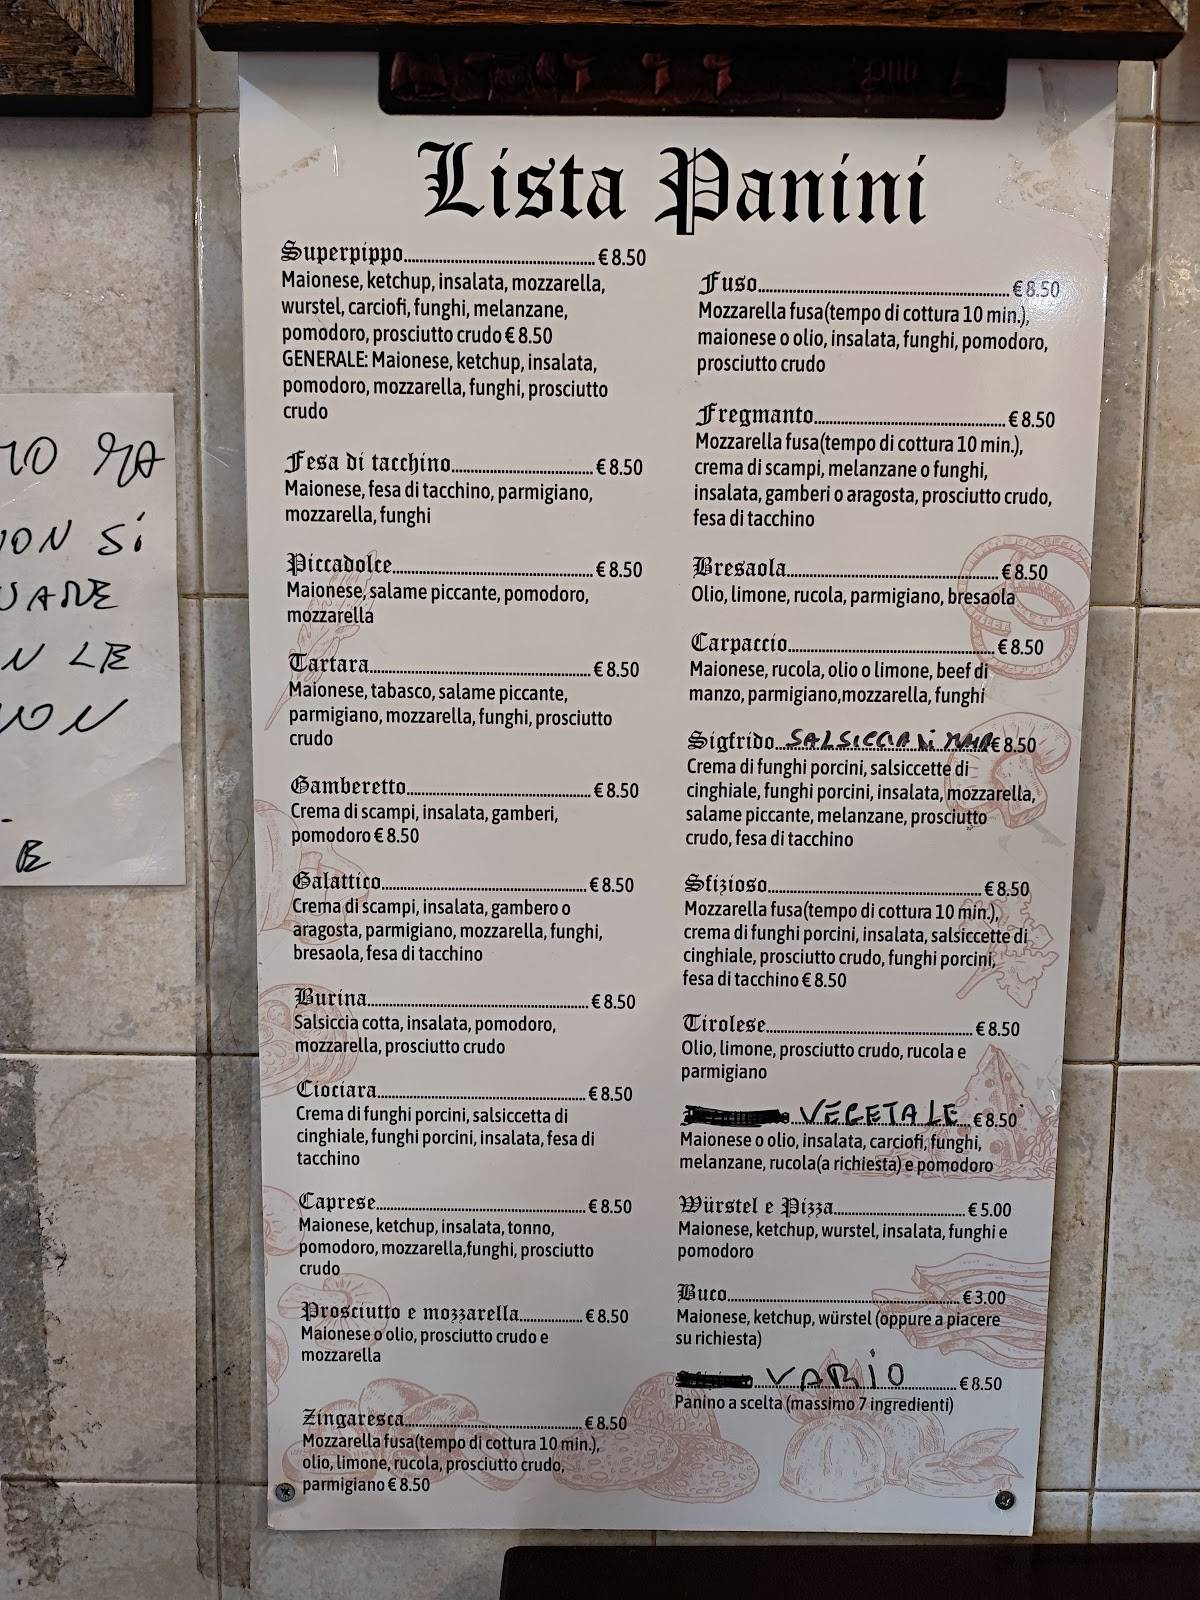 Pub
Lista Panini
Superpippo....................€ 8.50
Maionese, ketchup, insalata, mozzarella,
wurstel, carciofi, funghi, melanzane,
pomodoro, prosciutto crudo € 8.50
GENERALE: Maionese, ketchup, insalata,
pomodoro, mozzarella, funghi, prosciutto
crudo
Fesa di tacchino....................€ 8.50
Maionese, fesa di tacchino, parmigiano,
mozzarella, funghi
Piccadolce....................€ 8.50
Maionese, salame piccante, pomodoro,
mozzarella
Tartara....................€ 8.50
Maionese, tabasco, salame piccante,
parmigiano, mozzarella, funghi, prosciutto
crudo
Gamberetto....................€ 8.50
Crema di scampi, insalata, gamberi,
pomodoro € 8.50
Galattico....................€ 8.50
Crema di scampi, insalata, gambero o
aragosta, parmigiano, mozzarella, funghi,
bresaola, fesa di tacchino
Burina....................€ 8.50
Salsiccia cotta, insalata, pomodoro,
mozzarella, prosciutto crudo
Ciociara....................€ 8.50
Crema di funghi porcini, salsiccetta di
cinghiale, funghi porcini, insalata, fesa di
tacchino
Caprese....................€ 8.50
Maionese, ketchup, insalata, tonno,
pomodoro, mozzarella,funghi, prosciutto
crudo
Prosciutto e mozzarella....................€ 8.50
Maionese o olio, prosciutto crudo e
mozzarella
Zingaresca....................€ 8.50
Mozzarella fusa(tempo di cottura 10 min.),
olio, limone, rucola, prosciutto crudo,
parmigiano € 8.50
Fuso....................€ 8.50
Mozzarella fusa(tempo di cottura 10 min.),
maionese o olio, insalata, funghi, pomodoro,
prosciutto crudo
Fregmanto....................€ 8.50
Mozzarella fusa(tempo di cottura 10 min.),
crema di scampi, melanzane o funghi,
insalata, gamberi o aragosta, prosciutto crudo,
fesa di tacchino
Bresaola....................€ 8.50
Olio, limone, rucola, parmigiano, bresaola
Carpaccio....................€ 8.50
Maionese, rucola, olio o limone, beef di
manzo, parmigiano,mozzarella, funghi
Sigfrido...SALSICCIA Di € 8.50
Crema di funghi porcini, salsiccette di
cinghiale, funghi porcini, insalata, mozzarella,
salame piccante, melanzane, prosciutto
crudo, fesa di tacchino
Sfizioso....................€ 8.50
Mozzarella fusa(tempo di cottura 10 min.),
crema di funghi porcini, insalata, salsiccette di
cinghiale, prosciutto crudo, funghi porcini,
fesa di tacchino € 8.50
Tirolese....................€ 8.50
Olio, limone, prosciutto crudo, rucola e
parmigiano
VEGETALE...€ 8.50
Maionese o olio, insalata, carciofi, funghi,
melanzane, rucola(a richiesta) e pomodoro
Würstel e Pizza....................€ 5.00
Maionese, ketchup, wurstel, insalata, funghi e
pomodoro
Buco....................€ 3.00
Maionese, ketchup, würstel (oppure a piacere
su richiesta)
VARiO....................€ 8.50
Panino a scelta (massimo 7 ingredienti)
MA
NON Si
N LE
NON
E